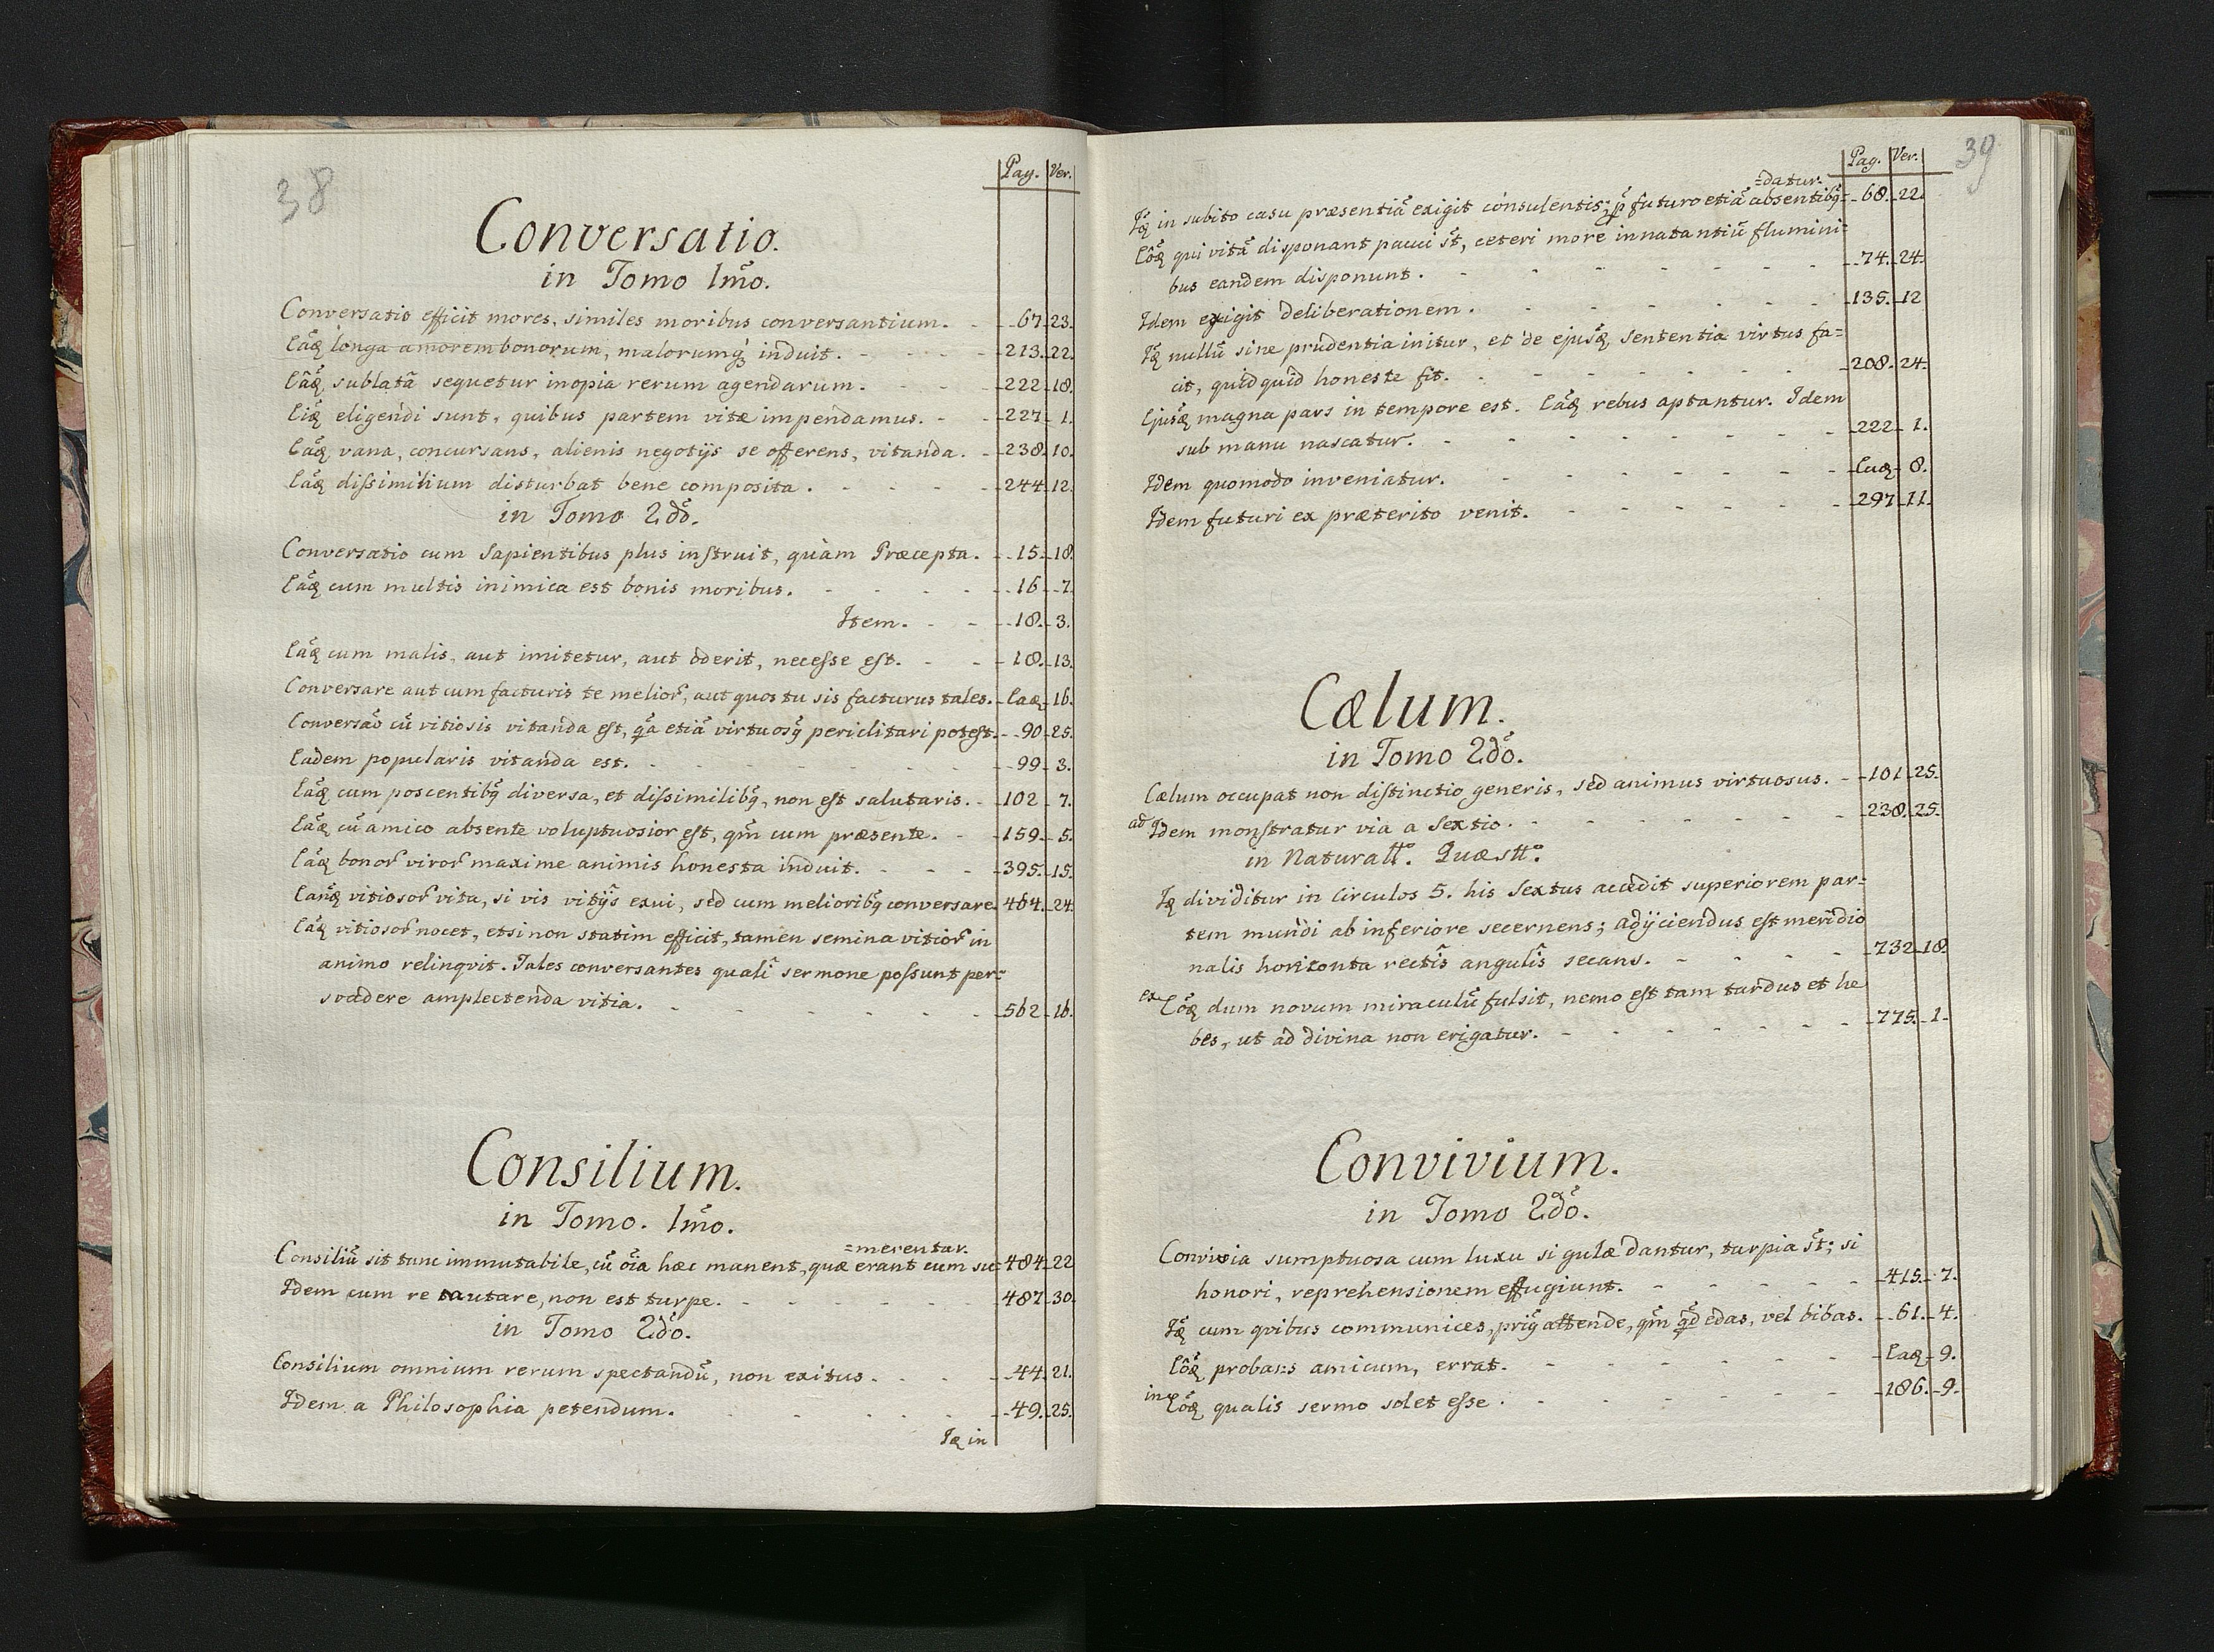 38
Pag. Ver.
Conversatio.
in Tomo 1mo.
Conversatio efficit mores, similes moribus conversantium. - - 67. 23.
Eāq longa amorem bonorum, malorumq induit. - - - - 213. 22.
Eâq sublatâ sequetur inopia rerum agendarum. - - - 222. 18.
Eiq eligendi sunt, quibus partem vitæ impendamus. - - 227. 1.
Eāq vana, concursans, alienis negotijs se offerens, vitanda. - 238. 10.
Eāq dissimilium disturbat bene composita. - - - - 244. 12.
in Tomo 2do.
Conversatio cum Sapientibus plus instruit, quàm Præcepta. - 15. 18.
Eāq cum multis inimica est bonis moribus. - - - - 16. 7.
Item. - - 18. 3.
Eāq cum malis, aut imitetur, aut oderit, necesse est. - - 18. 13.
Conversare aut cum facturis te melior, aut quos tu sis facturus tales. - Eaq. 16.
Conversāo cū vitiosis vitanda est, qa etiā virtuosq periclitari potest. - 90. 25.
Eadem popularis vitanda est. - - - - - - 99. 3.
Eāq cum poscentibq diversa, et dissimilibq, non est salutaris. - 102. 7.
Eāq cū amico absente voluptuosior est, qm cum præsente. - 159. 5.
Eāq bonor viror maxime animis honesta induit. - - - 395. 15.
Eanq vitiosor vita, si vis vitijs exui, sed cum melioribq conversare. 464. 24.
Eāq vitiosor nocet, etsi non statim efficit, tamen semina vitior in
animo relinqvit. Tales conversantes quali sermone possunt per=
svadere amplectenda vitia. - - - - - - 562. 16.
Consilium.
in Tomo. 1mo.
=merentur.
Consiliū sit tunc immutabile, cū oia hæc manent, quæ erant cum su= 484. 22
Idem cum re mutare, non est turpe. - - - - - 487. 30.
in Tomo 2do.
Consilium omnium rerum spectandū, non exitus. - - - 44. 21.
Idem a Philosophia petendum. - - - - - 49. 25.
Iq in
39
Pag. Ver.
=datur.
Iq in subito casu præsentiā exigit consulentis; p futuro etiā absentibq= 68. 22.
Eôq qui vitā disponant pauci st, ceteri more innatantiū flumini=
bus eandem disponunt. - - - - - - - 74. 24.
Idem exigit deliberationem. - - - - - - 135. 12
Iq nullū sine prudentia initur, et de ejusq sententia virtus fa=
cit, quidquid honeste fit. - - - - - - 208. 24.
Ejusq magna pars in tempore est. Eāq rebus aptantur. Idem
sub manu nascatur. - - - - - - - 222. 1.
Idem quomodo inveniatur. - - - - - - Eaq. 8.
Idem futuri ex præterito venit. - - - - - 297. 11.
Cælum.
in Tomo 2do.
Cælum occupat non distinctio generis, sed animus virtuosus. - 101. 25.
ad Idem monstratur via a Sextio. - - - - - - 238. 25.
in Naturall. Quæstt.
Iq dividitur in Circulos 5. his Sextus accedit superiorem par=
tem mundi ab inferiore secernens; adijciendus est meridio
nalis horizonta rectîs angulîs secans. - - - - 732. 18.
ex Eôq dum novum miraculū fulsit, nemo est tam tardus et he
bes, ut ad divina non erigatur. - - - - - - 775. 1.
Convivium.
in Tomo 2do.
Convivia sumptuosa cum luxu si gulæ dantur, turpia st; si
honori, reprehensionem effugiunt. - - - - - 415. 7.
Iq cum qvibus communices, priq attende, qm qd edas, vel bibas. - 61. 4.
Eôq probans amicum, errat. - - - - - - Eaq. 9.
in Eôq qualis sermo solet esse. - - - - - - 186. 9.